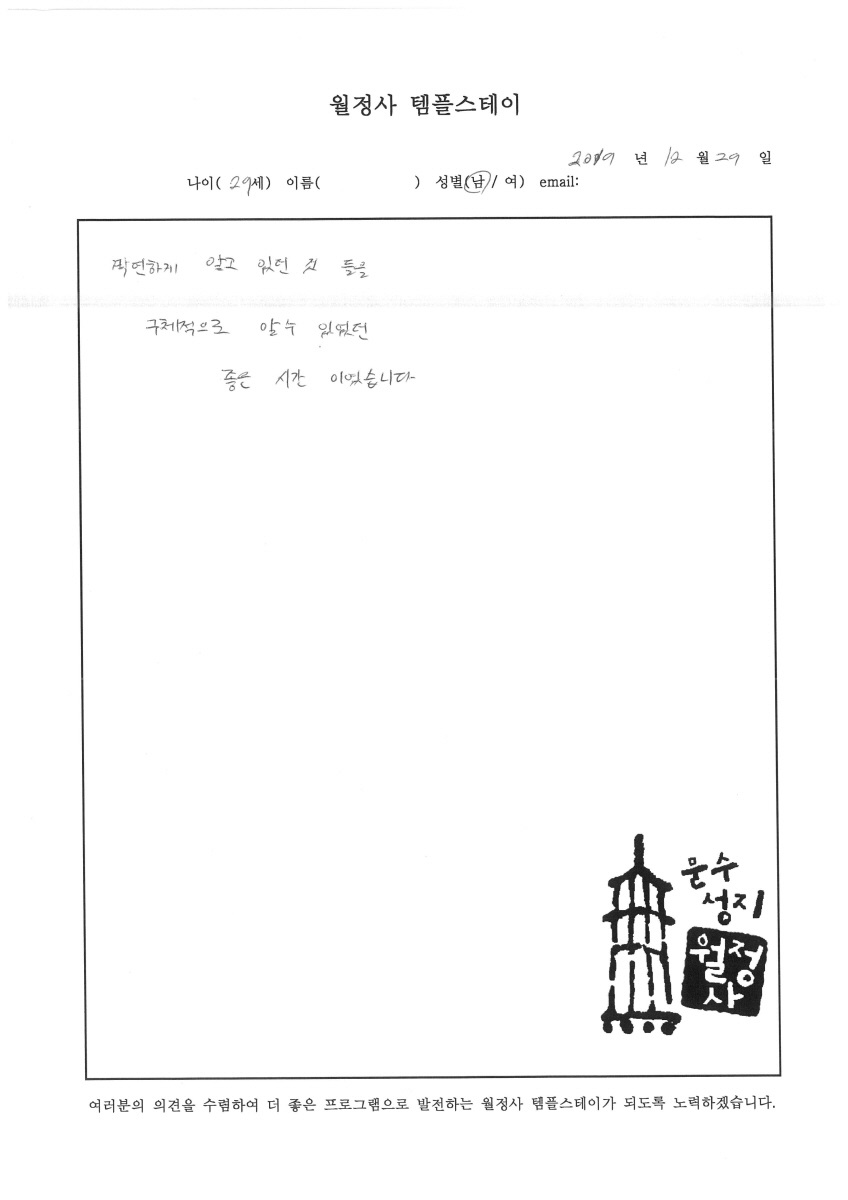 월정사 템플스테이
2019 년 12 월 29 일
나이( 29세) 이름( ) 성별(남 / 여) email:
막연하게 알고 있던 것 들을
구체적으로 알수 있었던
좋은 시간 이였습니다
문수
성지
월정
사
여러분의 의견을 수렴하여 더 좋은 프로그램으로 발전하는 월정사 템플스테이가 되도록 노력하겠습니다.